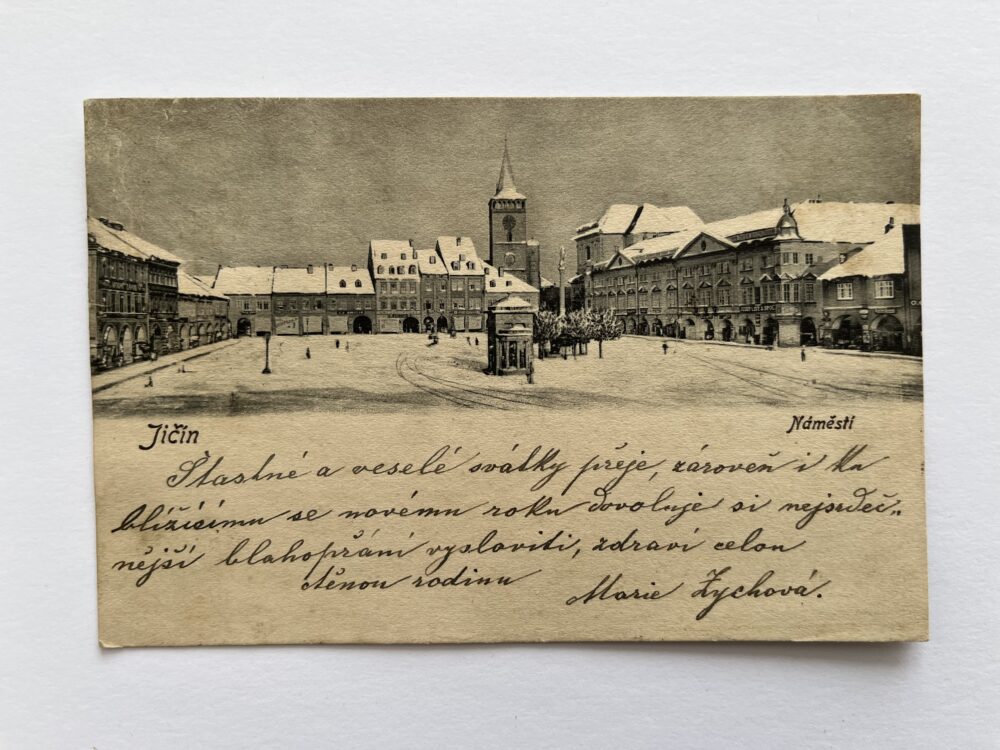 Jičín
Náměstí
Šťastné a veselé svátky přeje, zároveň i ku
blížícímu se novému roku dovoluje si nejsrdeč„
nější blahopřání vysloviti, zdraví celou
ctěnou rodinu
Marie Zychová.